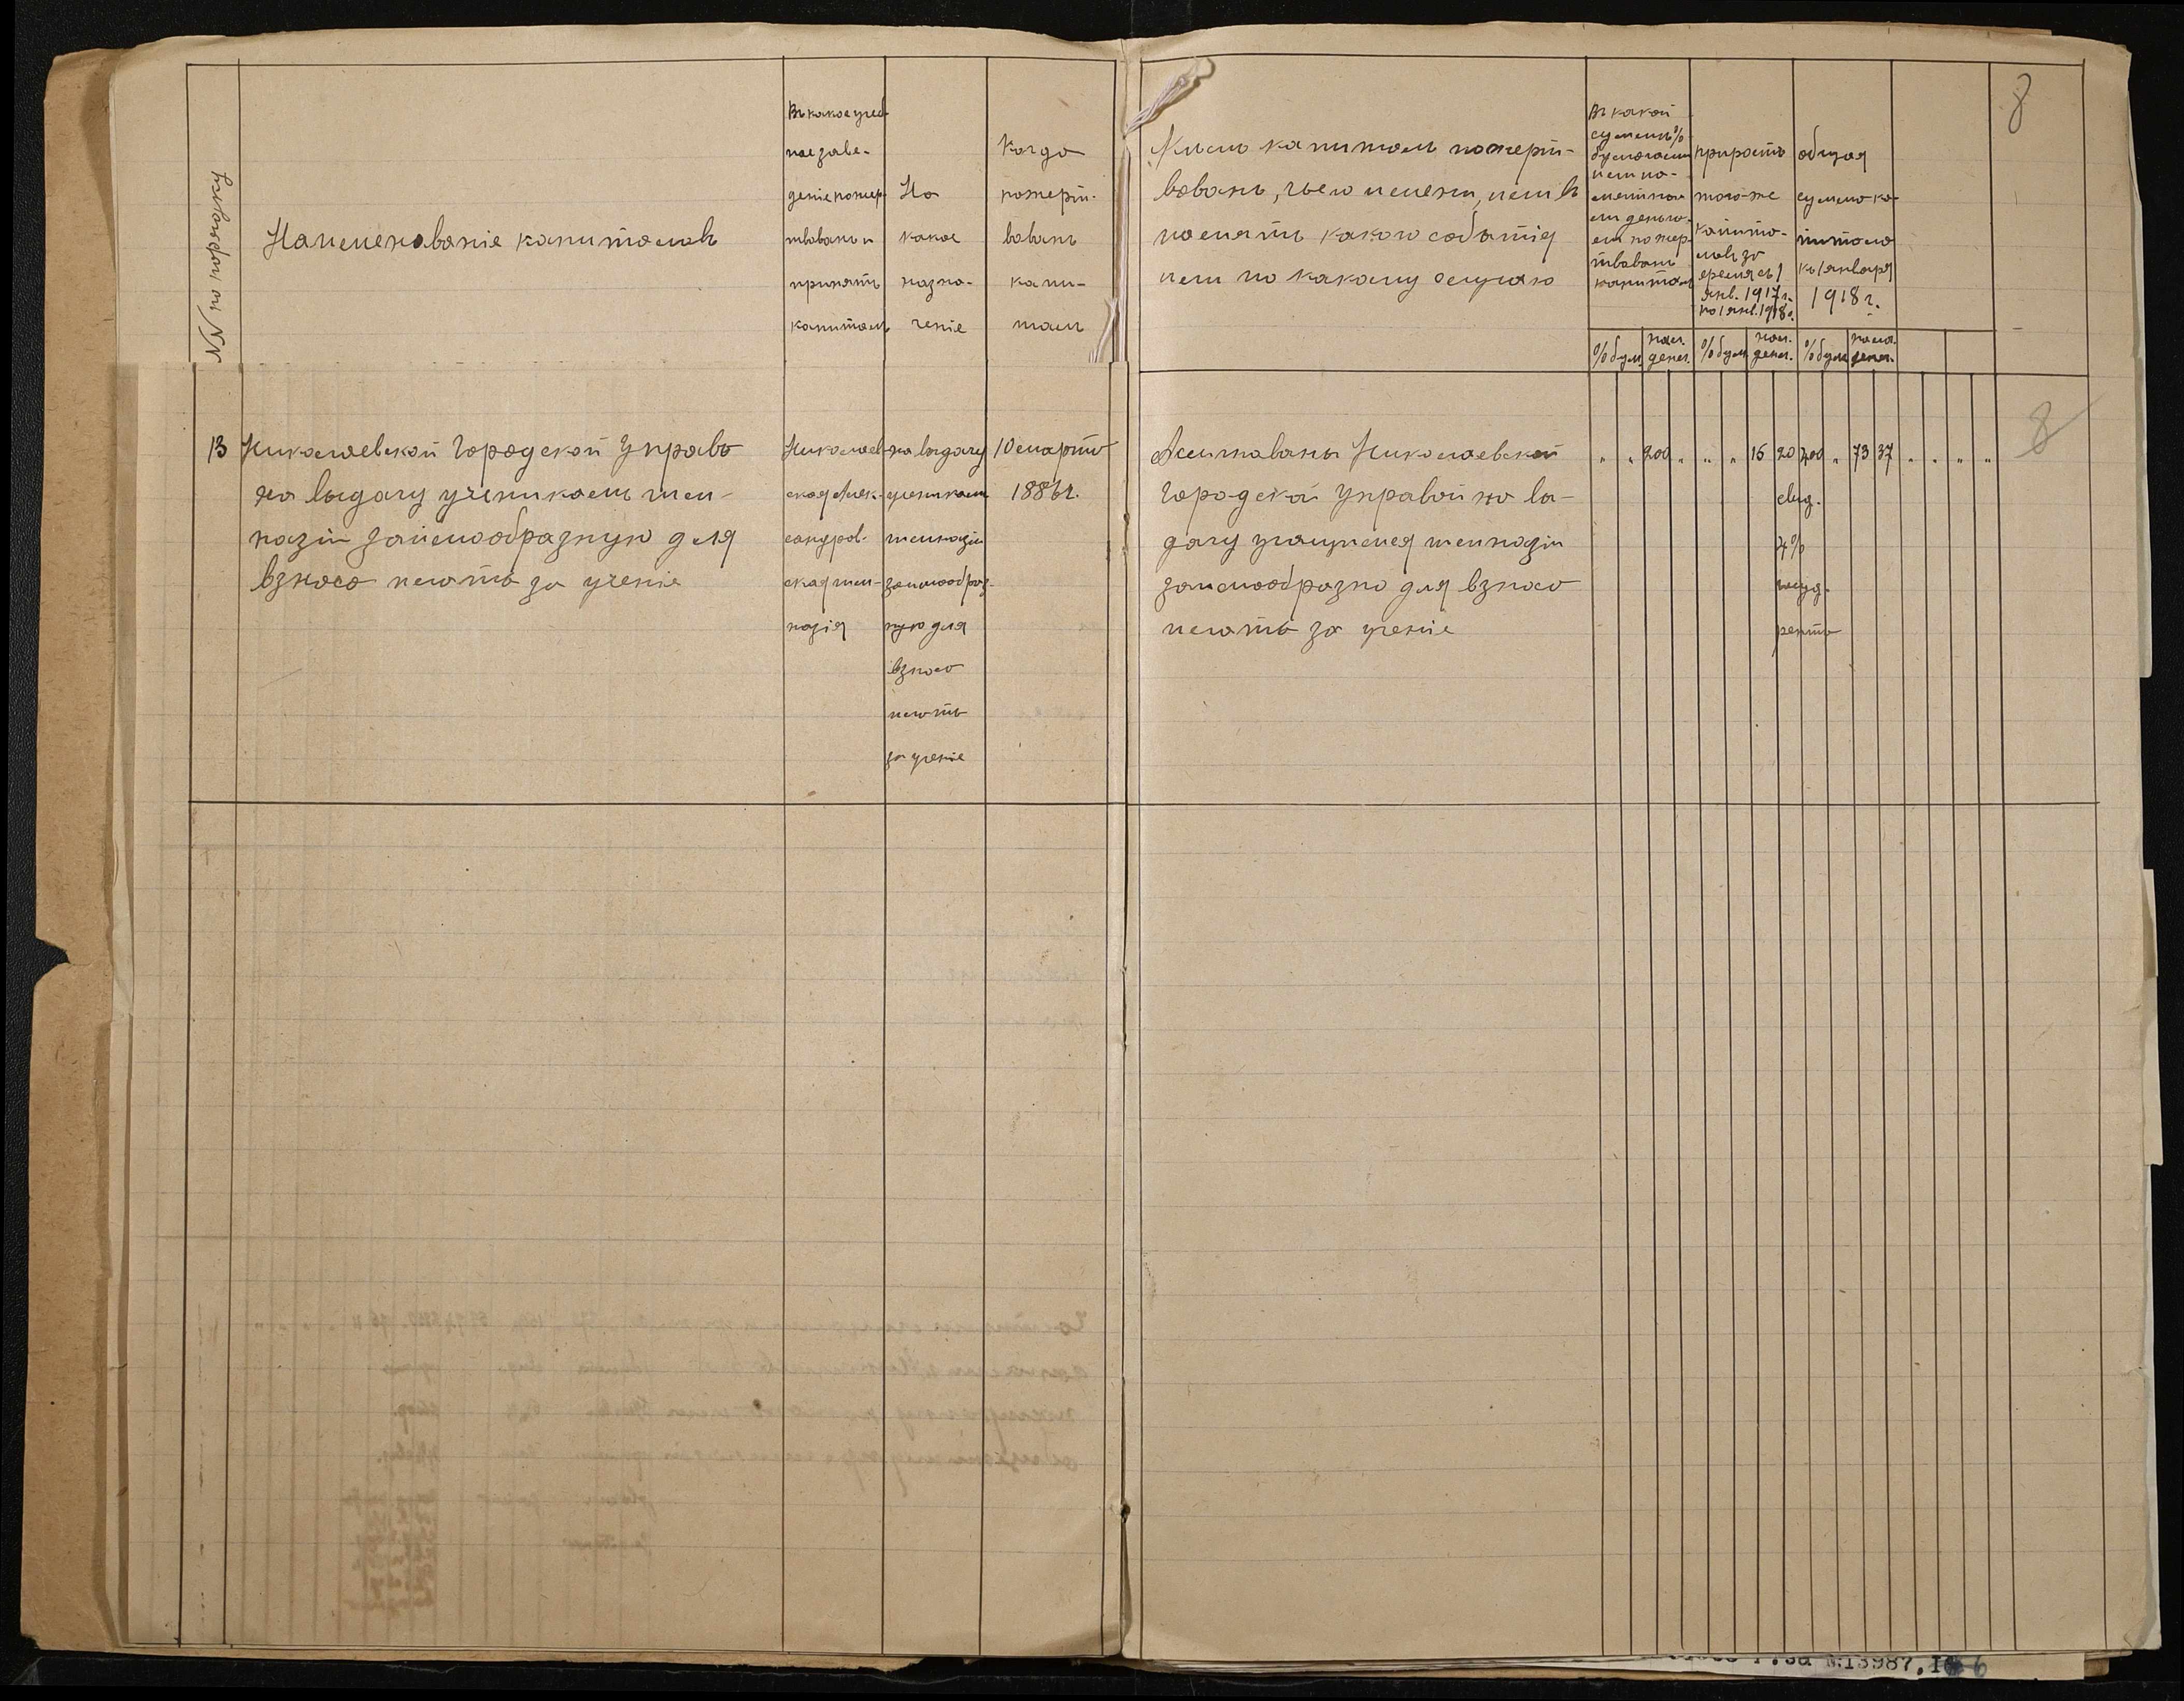 NN по порядку
Наименованіе капиталовъ
Въ какое учеб-
ное заве-
деніе пожер-
твованъ и
принятъ
капиталъ
На
какое
назна-
ченіе
Когда
пожерт-
вованъ
капи-
талъ
Кѣмъ капиталъ пожерт-
вованъ, чьего имени, или въ
память какого событія
или по какому случаю
Въ какой
суммѣ %
бумагами
или на-
личными
деньга-
ми пожер-
твованъ
капиталъ
приростъ
того-же
капита-
ла за
время съ 1
янв. 1917 г.
по 1 янв. 1918 г.
общая
сумма ка-
питала
къ 1 января
1918 г.
8
% бум. нал. денег. % бум. нал. денег. % бум. нал. денег.
13 Николаевской Городской Управы
на выдачу ученикамъ гим-
назіи заимообразную для
взноса платы за ученіе
Николаев-
ская Алек-
сандров-
ская гим-
назія
на выдачу
ученикам
гимназіи
заимообраз-
ную для
взноса
платы
за ученіе
10 марта
1886 г.
Ассигнованы Николаевской
Городской Управой на вы-
дачу учащимся гимназіи
заимообразно для взноса
платы за ученіе
" " 200 " " " 16 20 200 " 73 37 " " " "
свид.
4%
госуд.
рента
8
№13987.